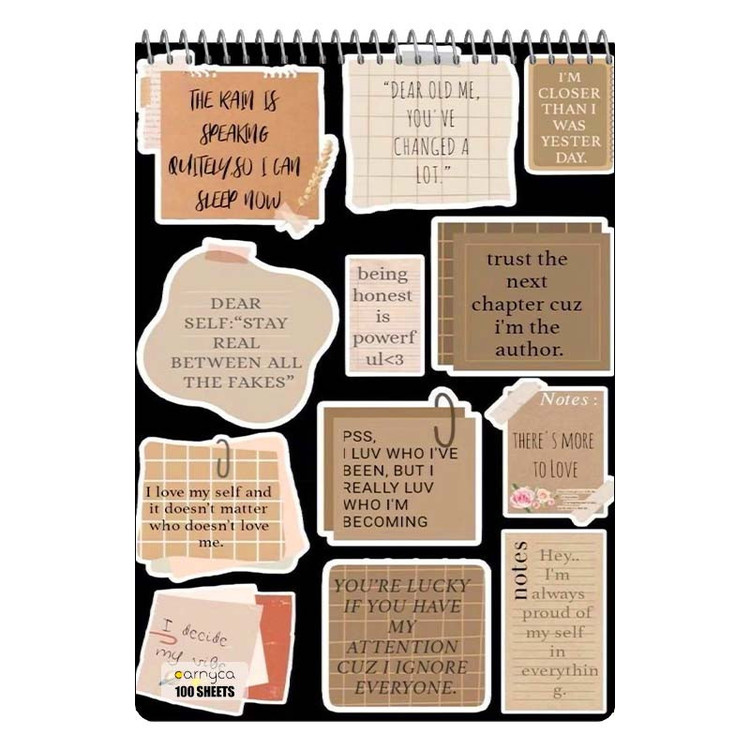 THE RAIN IS
SPEAKING
QUITELY,SO I CAN
SLEEP NOW
"DEAR OLD ME,
YOU'VE
CHANGED A
LOT."
I'M
CLOSER
THAN I
WAS
YESTER
DAY.
DEAR
SELF:"STAY
REAL
BETWEEN ALL
THE FAKES"
being
honest
is
powerf
ul<3
trust the
next
chapter cuz
i'm the
author.
I love my self and
it doesn't matter
who doesn't love
me.
PSS,
I LUV WHO I'VE
BEEN, BUT I
REALLY LUV
WHO I'M
BECOMING
Notes:
THERE'S MORE
TO LOVE
I decide
my vibe
carnyca
100 SHEETS
YOU'RE LUCKY
IF YOU HAVE
MY
ATTENTION
CUZ I IGNORE
EVERYONE.
notes
Hey..
I'm
always
proud of
my self
in
everythin
g.